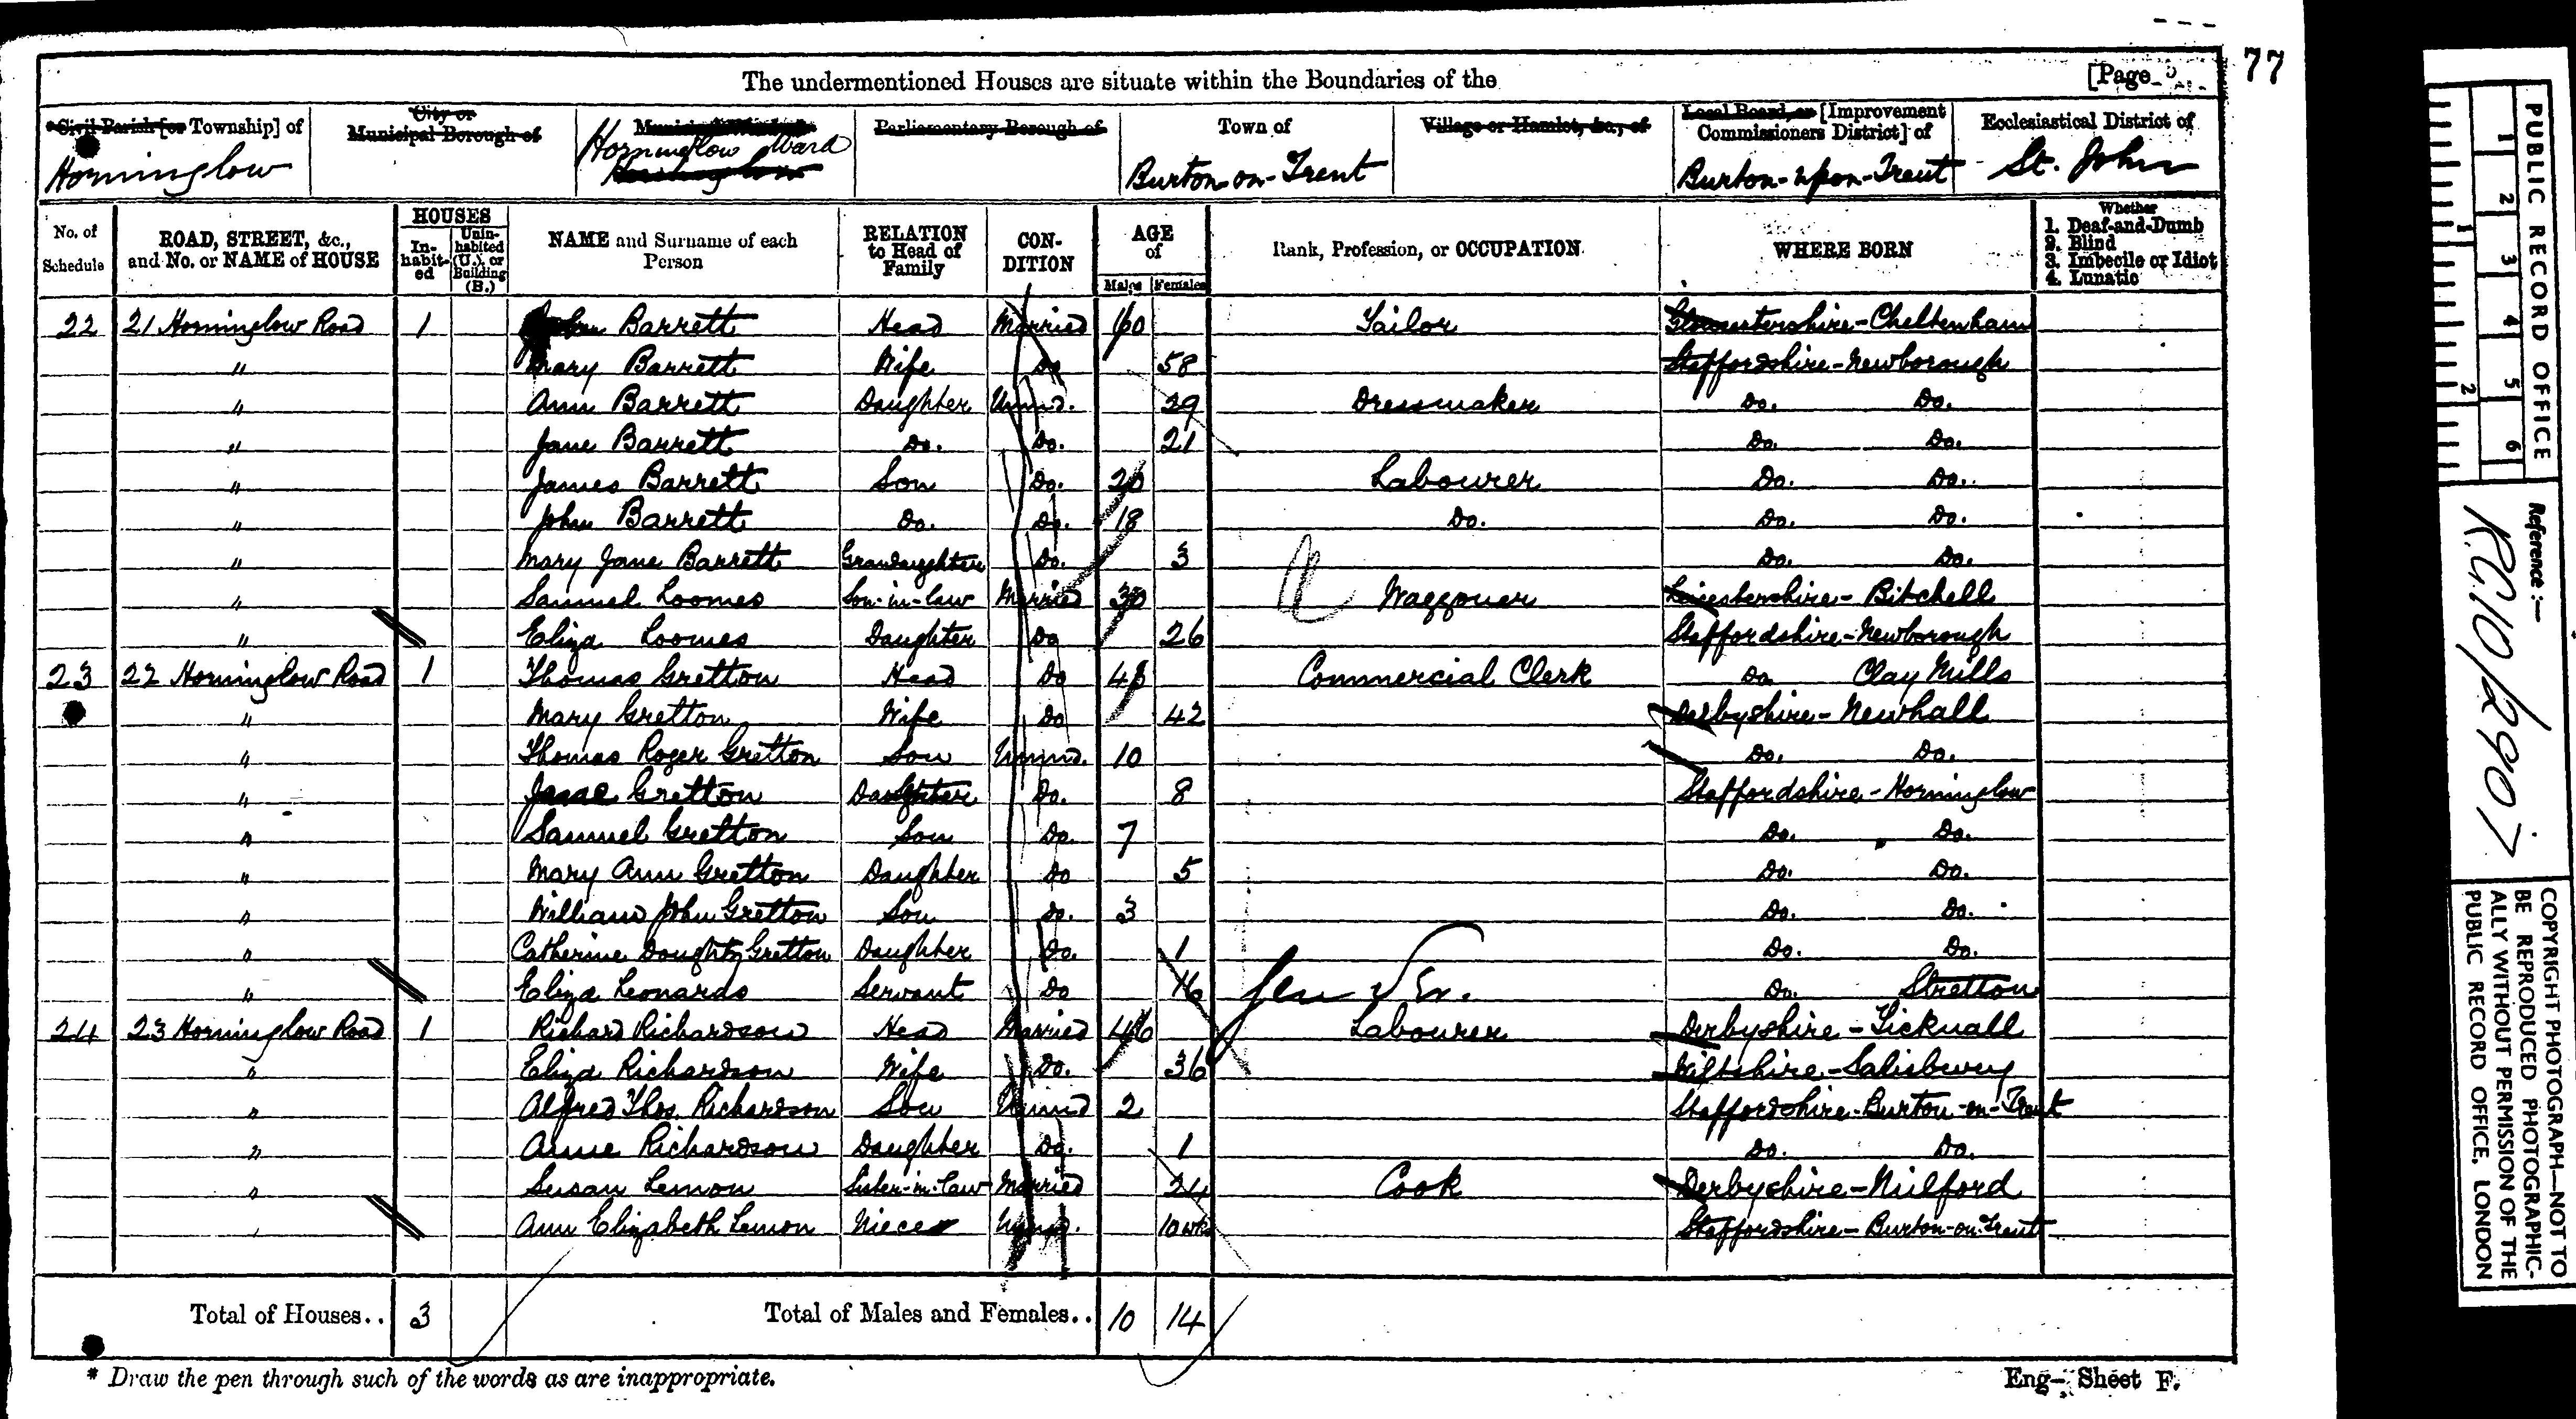 77
The undermentioned Houses are situate within the Boundaries of the [Page
*Civil Parish [or Township] of Horninglow
City or Municipal Borough of
Horninglow Ward
Parliamentary Borough of
Town of Burton-on-Trent
Village or Hamlet, &c., of
Local Board, or [Improvement Commissioners District] of Burton-upon-Trent
Ecclesiastical District of St. John
No. of Schedule
ROAD, STREET, &c., and No. or NAME of HOUSE
HOUSES Inhabited Uninhabited (U.), or Building (B.)
NAME and Surname of each Person
RELATION to Head of Family
CONDITION
AGE of Males Females
Rank, Profession, or OCCUPATION
WHERE BORN
Whether 1. Deaf-and-Dumb 2. Blind 3. Imbecile or Idiot 4. Lunatic
22 21 Horninglow Road 1 Barrett Head Married 60 Tailor Gloucestershire-Cheltenham
" Mary Barrett Wife Do 58 Staffordshire-Newborough
" Ann Barrett Daughter Unmd. 29 Dressmaker Do. Do.
" Jane Barrett Do. Do. 21 Do. Do.
" James Barrett Son Do. 20 Labourer Do. Do.
" John Barrett Do. Do. 18 Do. Do. Do.
" Mary Jane Barrett Grandaughter Do. 3 Do. Do.
" Samuel Loomes Son-in-law Married 30 Waggoner Leicestershire-Bitchell
" Eliza Loomes Daughter Do 26 Staffordshire-Newborough
23 22 Horninglow Road 1 Thomas Gretton Head Do 43 Commercial Clerk Do Clay Mills
" Mary Gretton Wife Do 42 Derbyshire-Newhall
" Thomas Roger Gretton Son Unmd. 10 Do. Do.
" Gretton Daughter Do. 8 Staffordshire-Horninglow
" Samuel Gretton Son Do. 7 Do. Do.
" Mary Ann Gretton Daughter Do 5 Do. Do.
" William John Gretton Son Do. 3 Do. Do.
" Catherine Doughty Gretton Daughter Do. 1 Do. Do.
" Eliza Leonards Servant Do 16 Gen Serv. Do. Stretton
24 23 Horninglow Road 1 Richard Richardson Head Married 46 Labourer Derbyshire-Ticknall
" Eliza Richardson Wife Do. 36 Wiltshire-Salisbury
" Alfred Thos. Richardson Son Unmd 2 Staffordshire-Burton-on-Trent
" Annie Richardson Daughter Do. 1 Do. Do.
" Susan Lemon Sister-in-law Married 24 Cook Derbyshire-Milford
" Ann Elizabeth Lemon Niece Unmd. 10wks Staffordshire-Burton-on-Trent
Total of Houses.. 3 Total of Males and Females.. 10 14
* Draw the pen through such of the words as are inappropriate.
Eng- Sheet F.
PUBLIC RECORD OFFICE
1 2 3 4 5 6
1 2
Reference :-
R.G. 10/2907
COPYRIGHT PHOTOGRAPH—NOT TO
BE REPRODUCED PHOTOGRAPHIC-
ALLY WITHOUT PERMISSION OF THE
PUBLIC RECORD OFFICE, LONDON